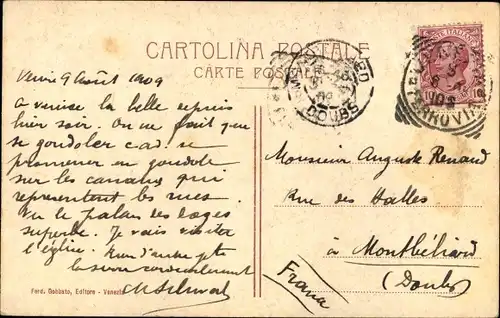 CARTOLINA POSTALE
CARTE POSTALE
POSTE ITALIANE
FERROVIA
DOUBS
Venise 9 Août 1909
A venise la belle depuis
hier soir. On ne fait que
se gondoler c.a.d. se
promener en gondole
sur les canaux qui
représentent les rues.
Vu le palais des doges
superbe. Je vais visiter
l'église.
cordialement
Monsieur Auguste Renaud
Rue des Halles
à Montbéliard
(Doubs)
France
Ferd. Gobbato, Editore - Venezia